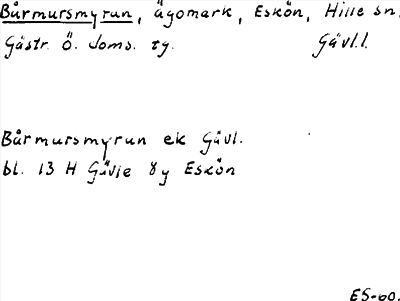 Bårmursmyrun, ägomark, Eskön, Hille sn,
Gästr. Ö. doms. tg. Gävl.l.
Bårmursmyrun ek Gävl.
bl. 13 H Gävle 8y Eskön
ES-60.